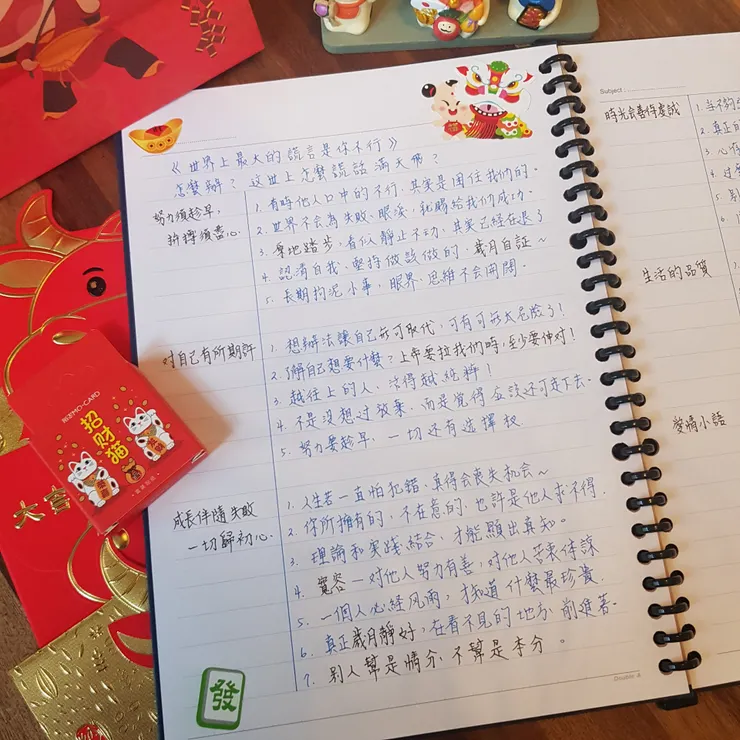 《世界上最大的謊言是你不行》
怎麼辦？這世上怎麼謊話滿天飛？
努力須趁早，
拚搏須盡心。
1. 有時他人口中的不行，其實是困住我們的。
2. 世界不會為失敗、眼淚，就賜給我們成功。
3. 原地踏步，看似靜止不動，其實已經在退了
4. 認清自我、堅持做該做的，歲月自証～
5. 長期拘泥小事，眼界、思維不會開闊。
對自己有所期許
1. 想辦法讓自己無可取代，可有可無太危險了！
2. 了解自己想要什麼？上帝要拉我們時，至少要伸対！
3. 越往上的人，活得越純粹！
4. 不是沒想過放棄，而是覺得應該還可走下去。
5. 努力要趁早，一切還有選擇权
成長伴隨失敗
一切歸初心
1. 人生若一直怕犯錯，真得會喪失机会～
2. 你所擁有的，不在意的，也許是他人求不得。
3. 理論和实踐結合，才能顯出真知。
4. 寬容－对他人努力友善，对他人苦衷体諒
5. 一個人必経风雨，才知道什麼最珍貴。
6. 真正歲月靜好，在看不見的地方前進著。
7. 別人幫是情分，不幫是本分。
發
Double A
Subject
時光会善待真誠
1. 
2. 真正的
3. 心存
生活的品質
愛情小語
MO-CARD
招财猫
大吉